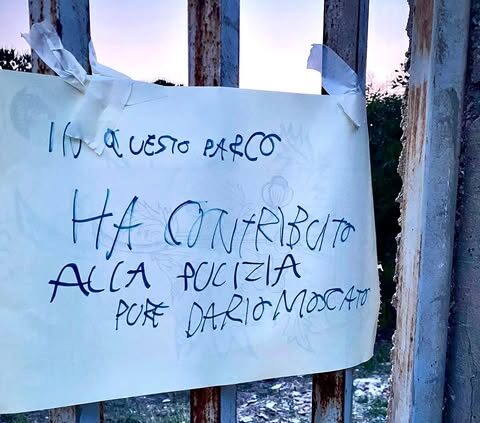 IN QUESTO PARCO
HA CONTRIBUITO
ALLA PULIZIA
PURE DARIO MOSCATO